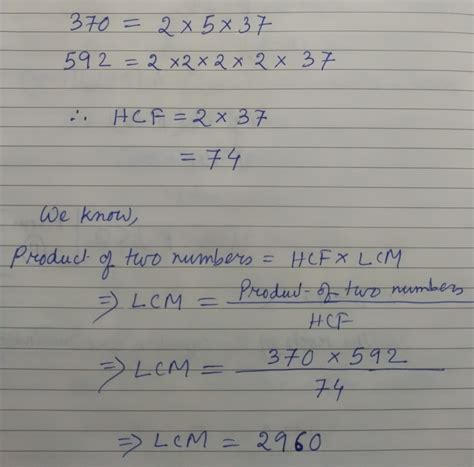 370 = 2×5×37
592 = 2×2×2×2×37
∴ HCF = 2×37
= 74
We know,
Product of two numbers = HCF × LCM
⇒ LCM = Product of two numbers / HCF
⇒ LCM = 370 × 592 / 74
⇒ LCM = 2960